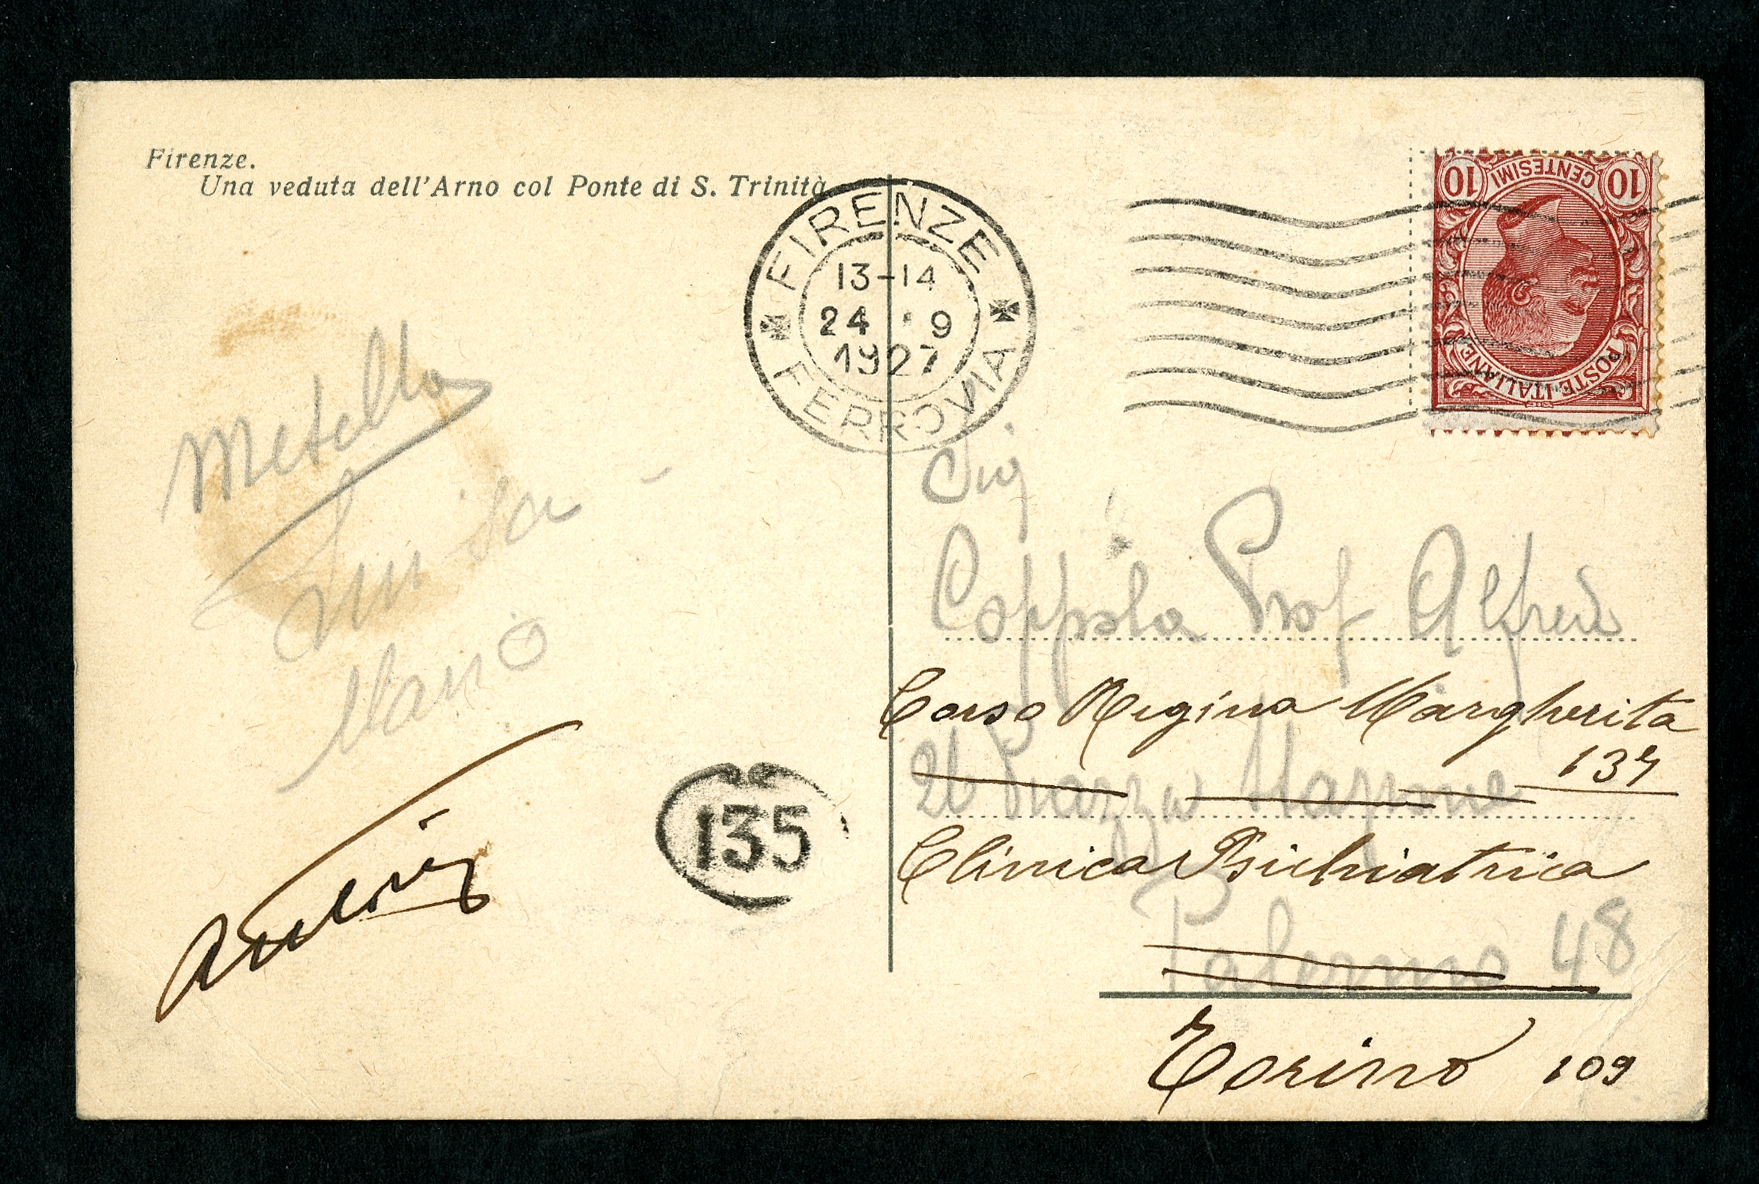 Firenze.
Una veduta dell'Arno col Ponte di S. Trinità
FIRENZE
13-14
24 · 9
1927
FERROVIA
10 CENTESIMI 10
POSTE ITALIANE
Metello
Luisa
Mario
135
Sig
Coppola Prof Alfredo
Corso Regina Margherita
137
26 Piazza Marmi
Clinica Psichiatrica
Palermo 48
Torino 109